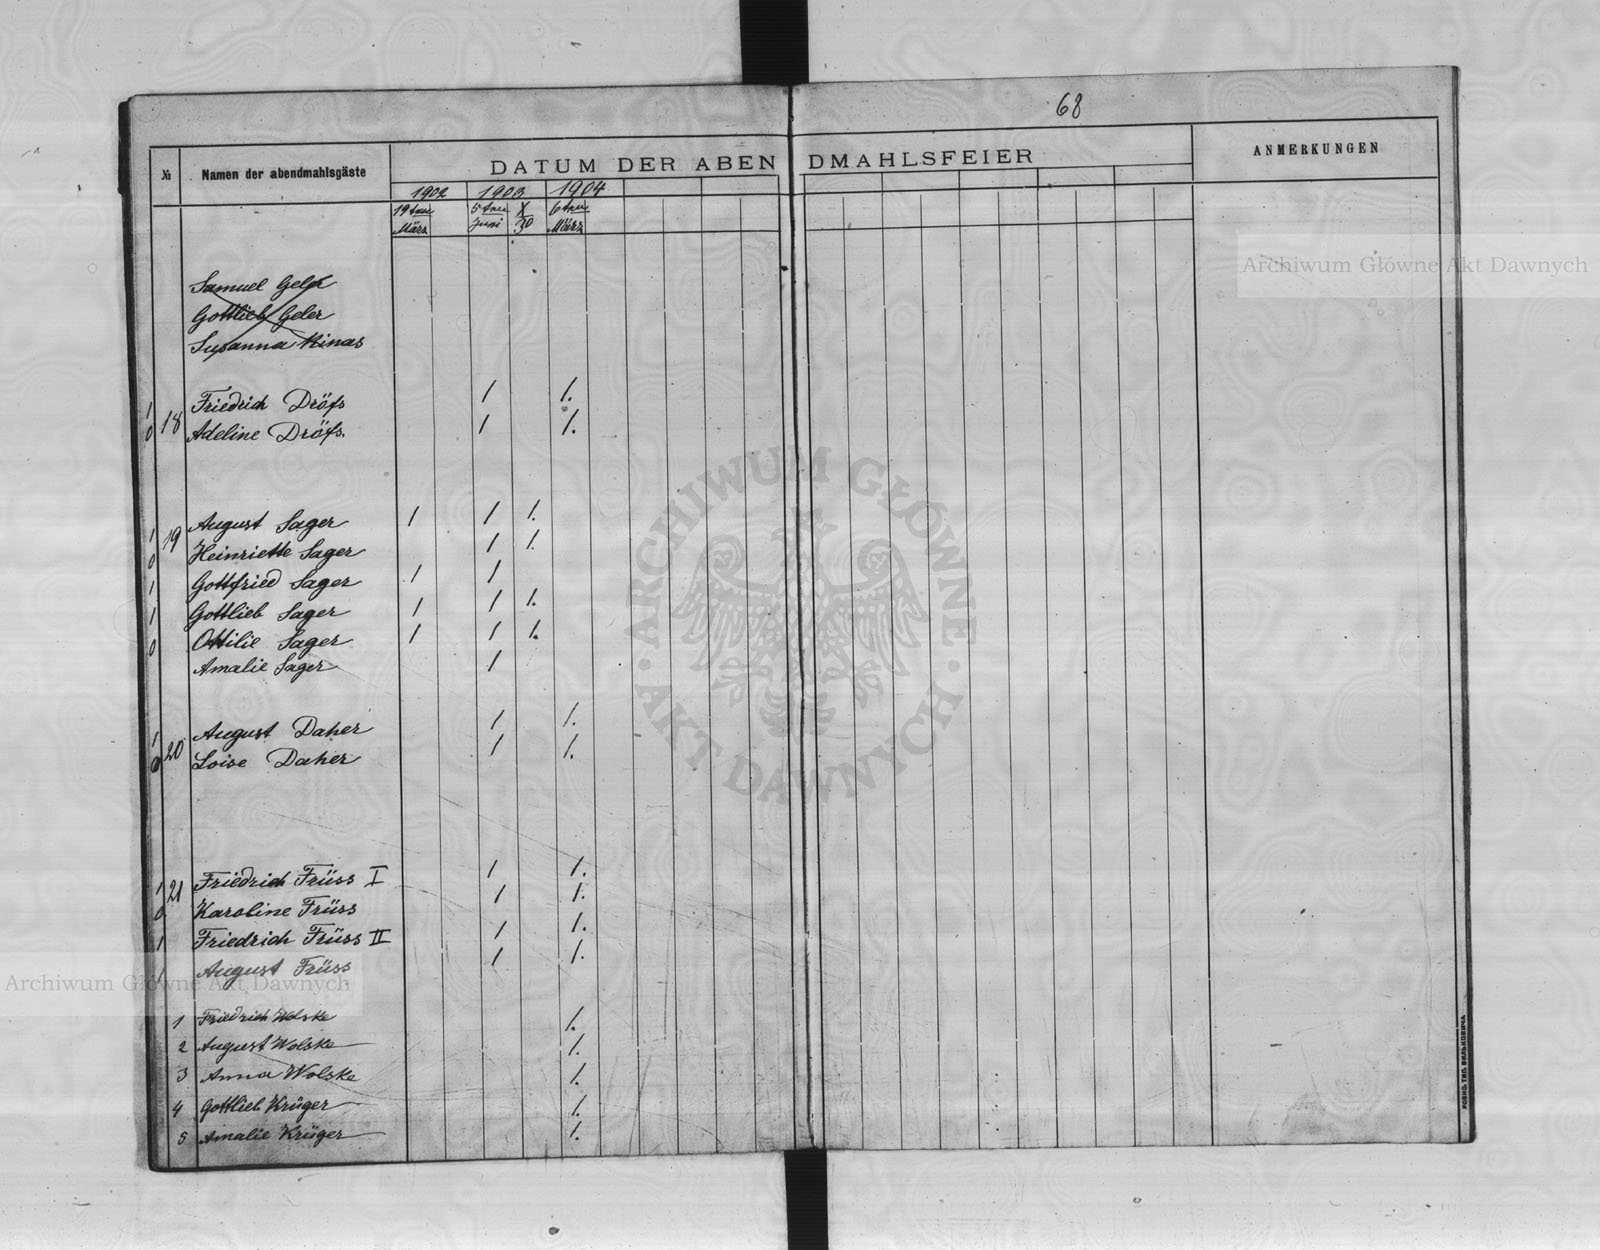 68
№ Namen der abendmahlsgäste DATUM DER ABENDMAHLSFEIER ANMERKUNGEN
1902 1903 1904
19ten März 5ten Juni X/30 6ten März
Samuel Geler
Gottlieb Geler
Susanna Kinas
1 Friedrich Dröfs 1 1.
0 18 Adeline Dröfs. 1 1.
1 19 August Sager 1 1 1.
0 Heinriette Sager 1 1.
1 Gottfried Sager 1 1
1 Gottlieb Sager 1 1 1.
0 Ottilie Sager 1 1 1.
Amalie Sager 1
1 20 August Daher 1 1.
0 Loise Daher 1 1.
1 21 Friedrich Früss I 1 1.
0 Karoline Früss 1 1.
1 Friedrich Früss II 1 1.
1 August Früss 1 1.
1 Friedrich Wolske 1.
2 August Wolske 1.
3 Anna Wolske 1.
4 Gottlieb Krüger 1.
5 Amalie Krüger 1.
РОВНО, ТИП. ВИЛЬКОВИЧА
Archiwum Główne Akt Dawnych
ARCHIWUM GŁÓWNE · AKT DAWNYCH ·
Archiwum Główne Akt Dawnych